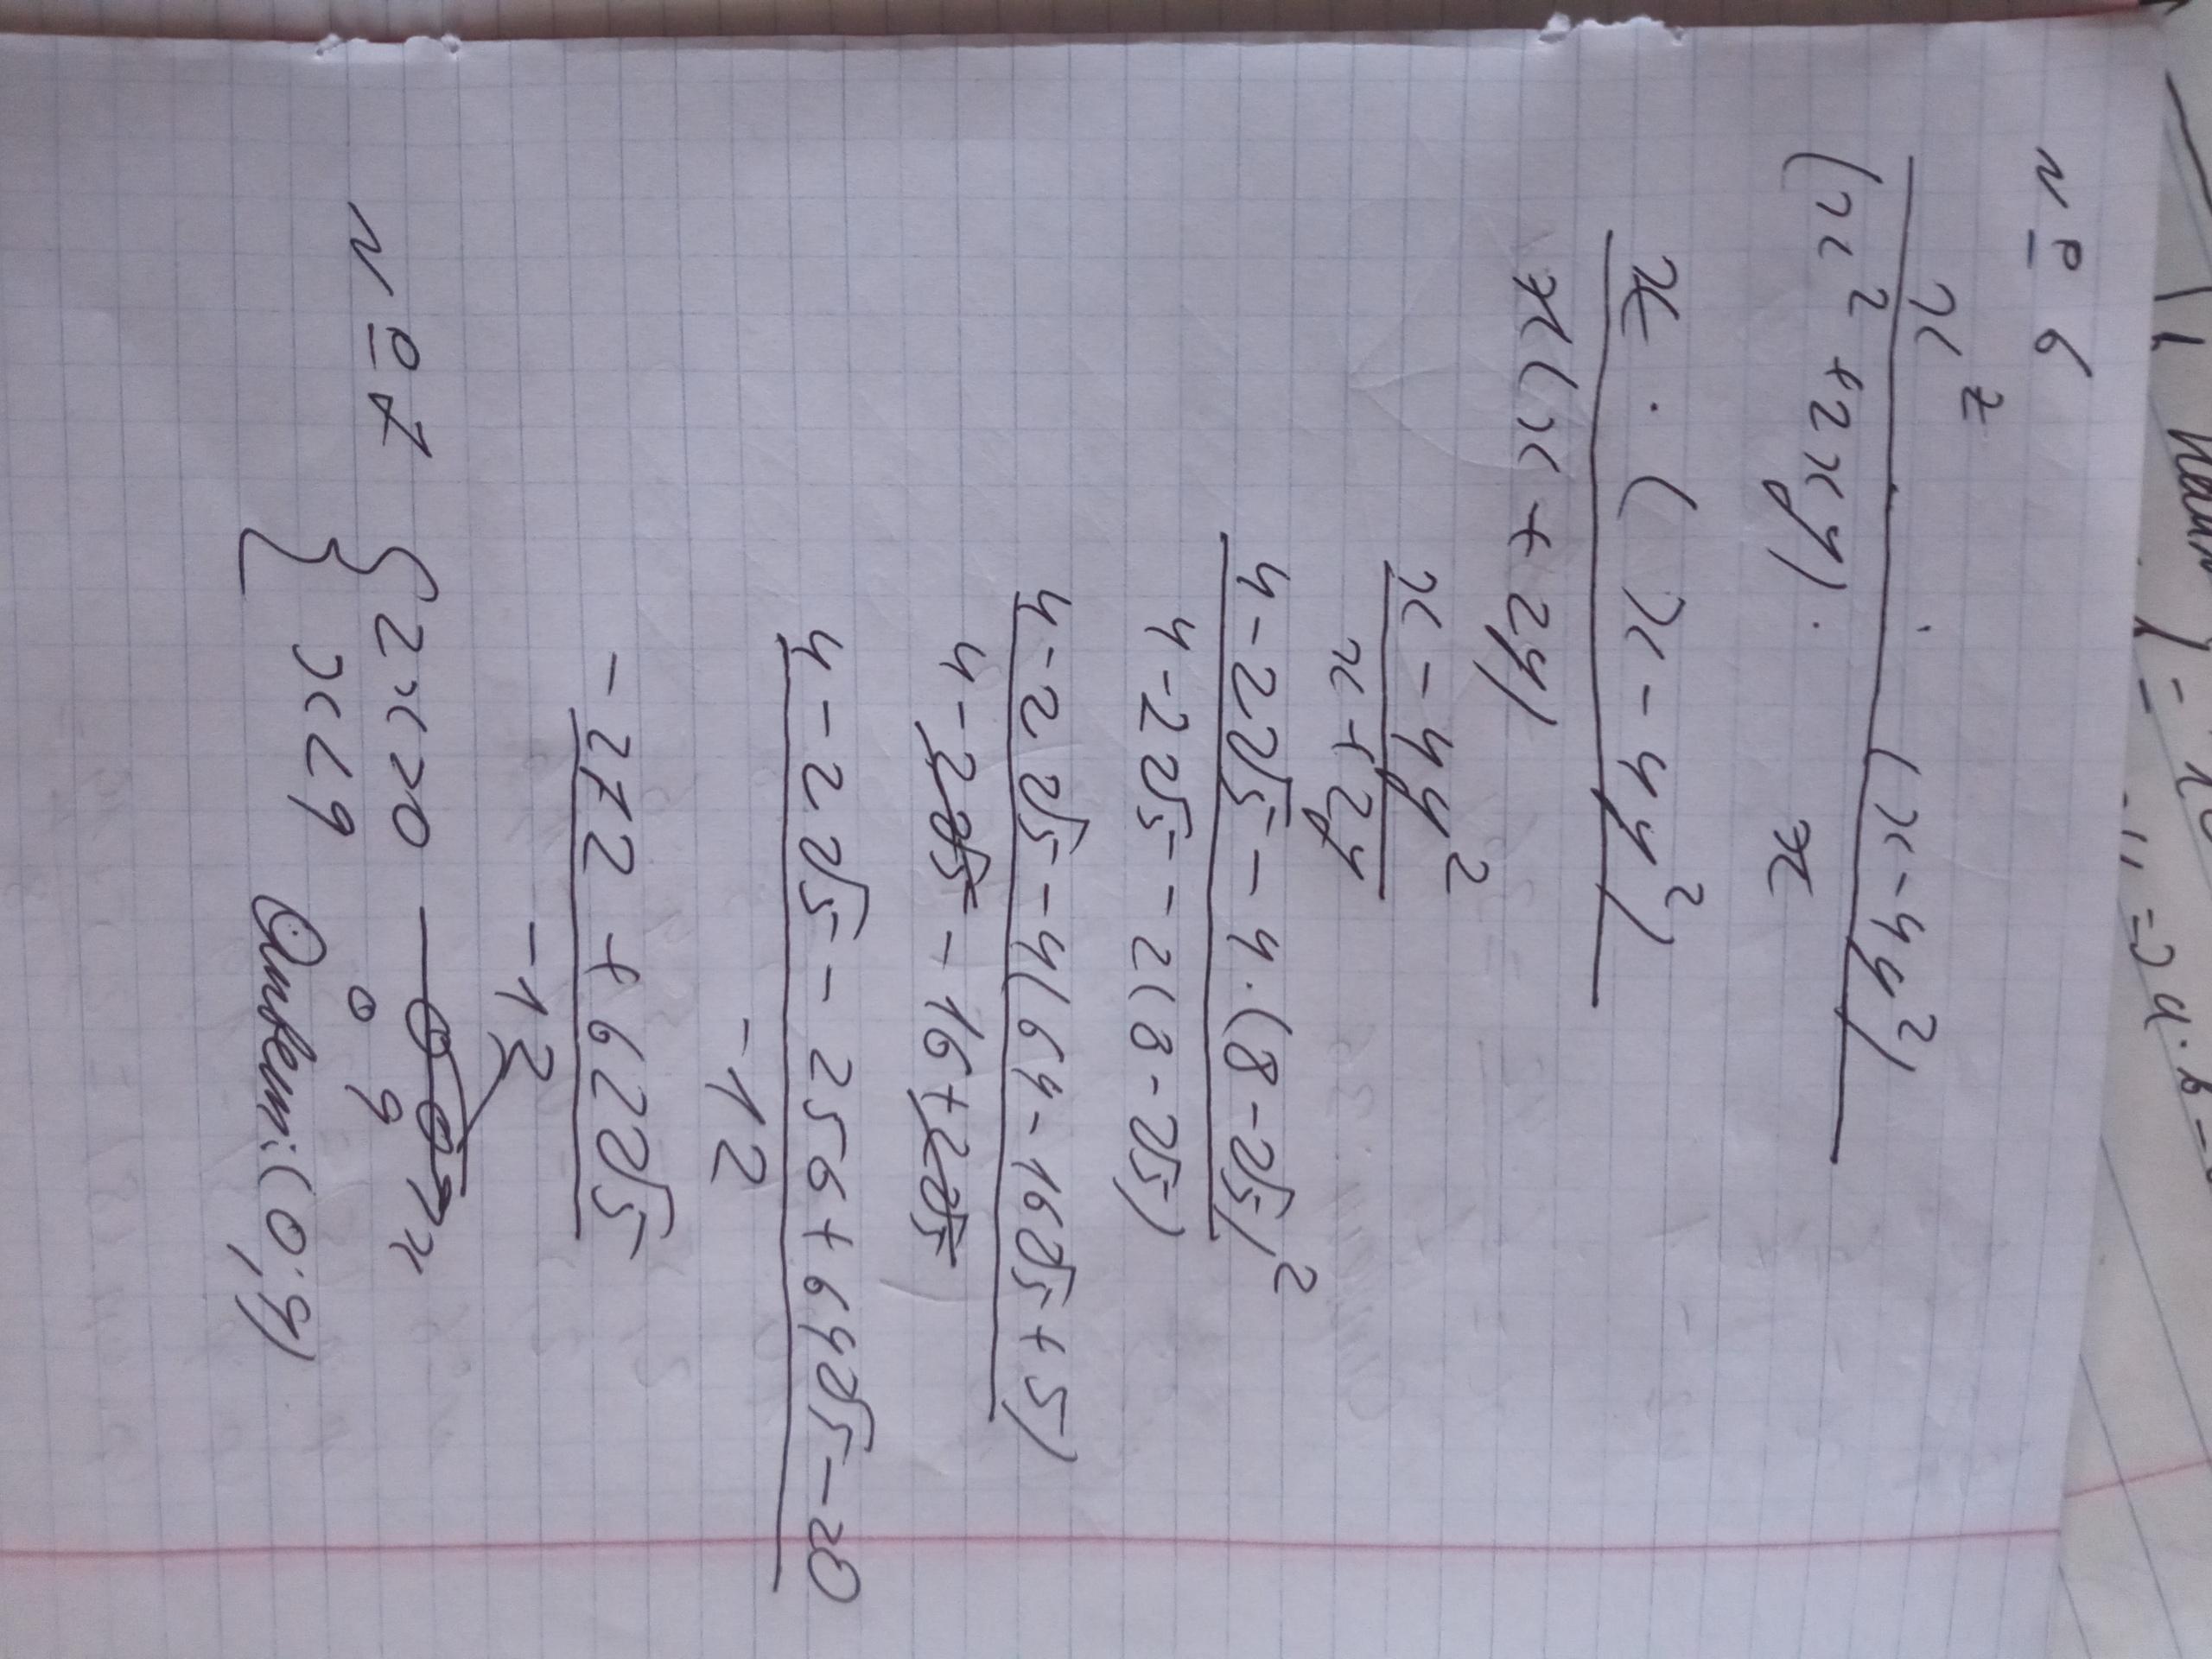 № 6
x²
· (x-4y²)
(x² + 2xy) · x
x · (x-4y²)
x(x + 2y)
x-4y²
x+2y
4-2√5 - 4·(8-√5)²
4-2√5 - 2(8-2√5)
4-2√5 - 4(64-16√5+5)
4-2√5 - 16+2√5
4-2√5 - 256+64√5-20
-12
-272+62√5
-12
№ 7 { x>0
x<9
0 9 x
Ответ: (0;9)